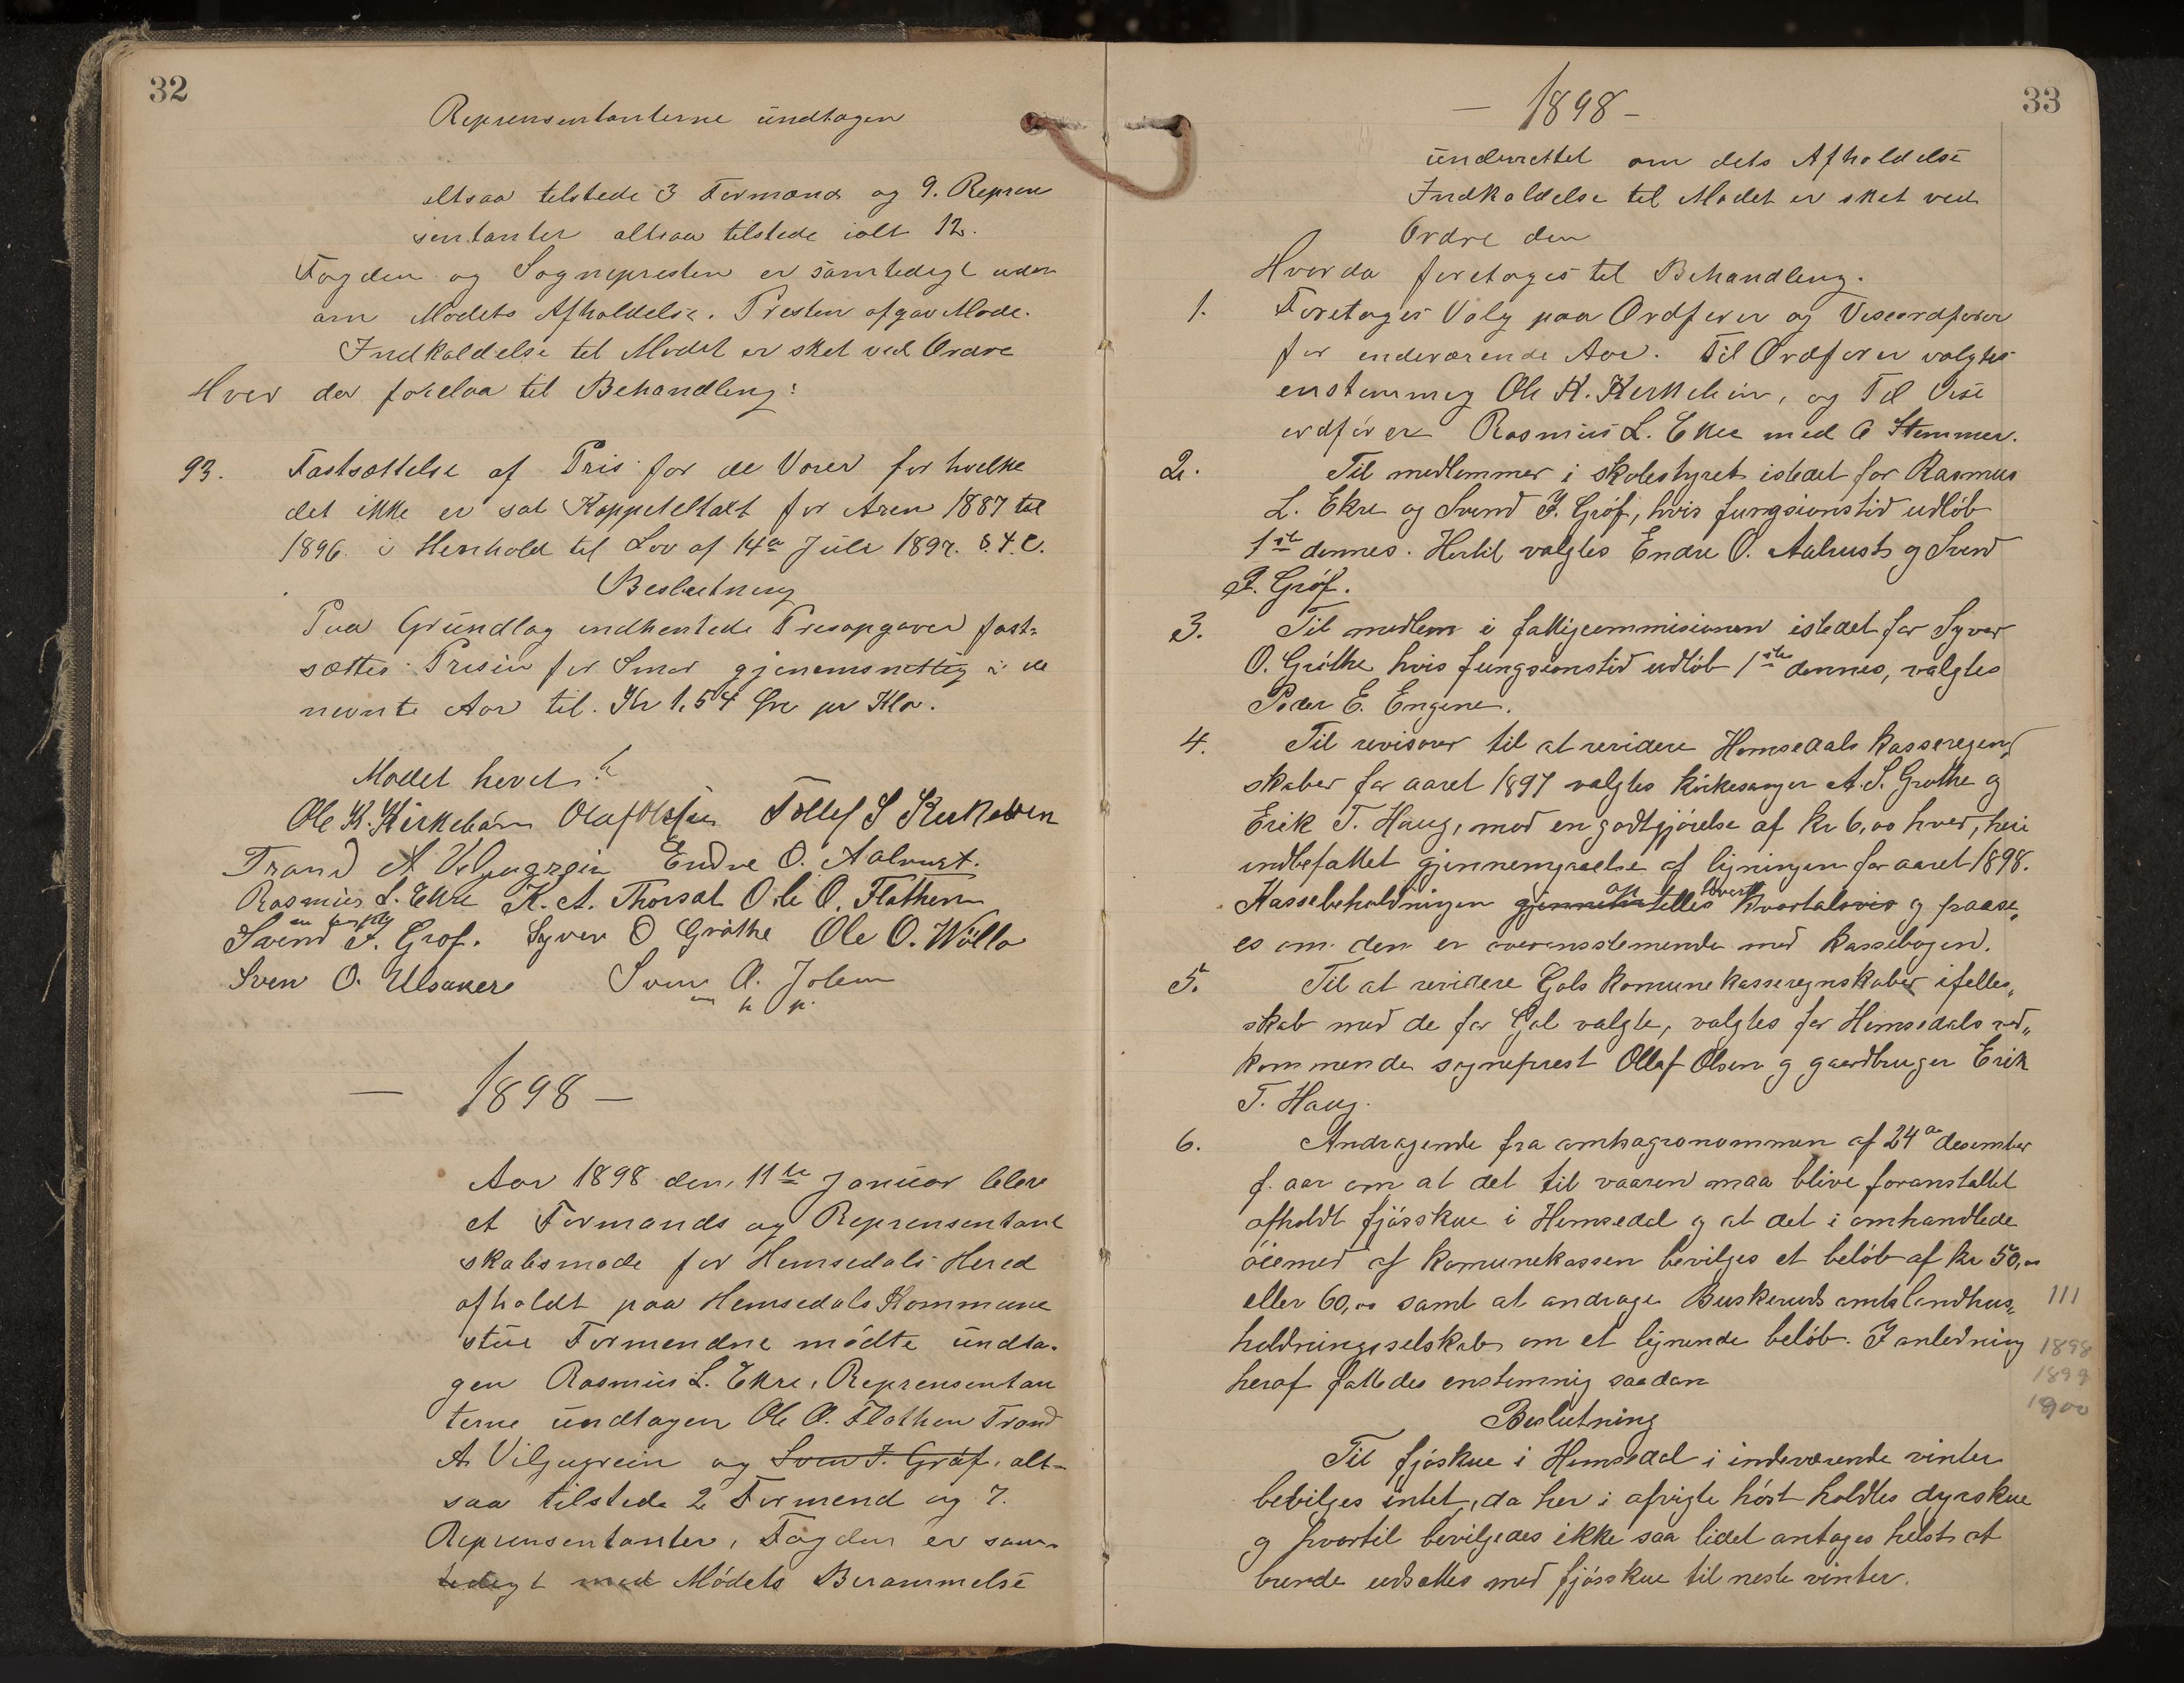 32
Reprensentanterne undtagen
altsaa tilstede 3 Formænd og 9. Repren
sentanter altsaa tilstede ialt 12.
Fogden og Sognepresten er samtedigt under
om Modets Afholdelse. Presten afgav Mode.
Indkaldelse til Modet er sket ved Ordre
Hver der forelaa til Behandling:
93. Fastsættelse af Pris for de Varer for hvilke
det ikke er sat Kappiteltakt for Aren 1887 til
1896 i Henhold til Lov af 14de Juli 1897. §.4.C.
Beslutning
Paa Grundlag indhentede Prisopgaver fast-
sættes Prisen for Smør gjenemsnittig i de
nevnte Aar til Kr 1,54 Øre pr Klo.
Modet hevet
Ole K. Kirkebøen Olaf Olsen Tollef S Kirkebøen
Trand A Veljugrein Endre O. Aalrust.
Rasmus L. Ekre K. A. Thorset Ole O. Flathen
Svend J. Grøf. Syver O Grøthe Ole O. Wøllo
Sven O. Ulsaker Sven A. Jolem
m p p.
— 1898 —
Aar 1898 den, 11te Januar blev
et Formands og Reprensentant
skabsmøde for Hemsedals Hered
afholdt paa Hemsedals Kommune
stue Formendne mødte undta-
gen Rasmus L. Ekre, Reprensentan
terne undtagen Ole O. Flathen Trond
A. Viljugrein og Sven J. Grøf, alt-
saa tilstede 2 Formend og 7.
Reprensentanter, Fogden er sam-
tedigt med Mødets Berammelse
33
— 1898 —
underrettet om dets Afholdelse
Indkaldelse til Modet er sket ved
Ordre den
Hvorda foretages til Behandling.
1. Foretages Valg paa Ordfører og Viseordfører
for indeværende Aar. Til Ordfører valgtes
enstemmig Ole K. Kirkebøen, og Til Vise
ordfører Rasmus L. Ekre med 6 Stemmer.
2. Til medlemmer i skolestyret istedet for Rasmus
L. Ekre og Svend J. Grøf, hvis fungsionstid udløb
1ste dennes. Hertil valgtes Endre O. Aalrust og Svend
J. Grøf.
3. Til medlem i fattigcommisionen istedet for Syver
O. Grøthe hvis fungsionstid udløb 1ste dennes, valgtes
Peder E. Engene.
4. Til revisorer til at revidere Hemsedals kasseregend
skaber for aaret 1897 valgtes kirkesanger A. S. Grøthe og
Erik T. Haug, mod en godtgjørelse af kr 6,00 hver, heri
indbefattet gjennemgaaelse af ligningen for aaret 1898.
Kassebeholdningen gjennem op telles hvert kvartalsvis og paase,,
es om den er overensstemende med kassebogen.
5. Til at revidere Gols komune kasseregnskaber ifelles,,
skab med de for Gol valgte, valgtes for Hemsedals ved,,
kommende sogneprest Ollaf Olsen og gaardbruger Erik
T. Haug.
6. Andragende fra amtsagronommen af 24de desember
f. aar om at det til vaaren maa blive foranstaltet
afholdt fjøsskue i Hemsedal og at det i omhandlede
øiemed af komunekassen bevilges et beløb af kr 50,00
eller 60,00 samt at andrage Buskeruds amts landhus,, 111
holdningsselskab om et lignende beløb. I anledning 1898
heraf fattedes enstemmig saadan 1899
1900
Beslutning
Til fjøskue i Hemsedal i indeværende vinter
bevilges intet, da her i afvigte høst holdtes dyrskue
og hvortil bevilgedes ikke saa lidet antages helst at
burde udsættes med fjøsskue til neste vinter.